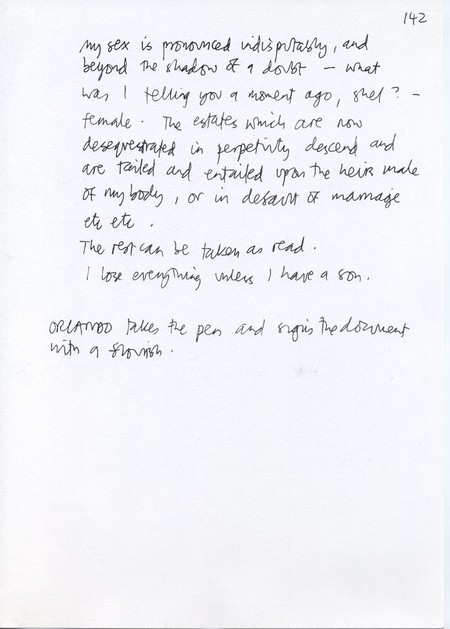 142
my sex is pronounced indisputably, and
beyond the shadow of a doubt – what
was I telling you a moment ago, shel? –
female. The estates which are now
desequestrated in perpetuity descend and
are tailed and entailed upon the heirs male
of my body, or in default of marriage
etc etc.
The rest can be taken as read.
I lose everything unless I have a son.
ORLANDO takes the pen and signs the document
with a flourish.